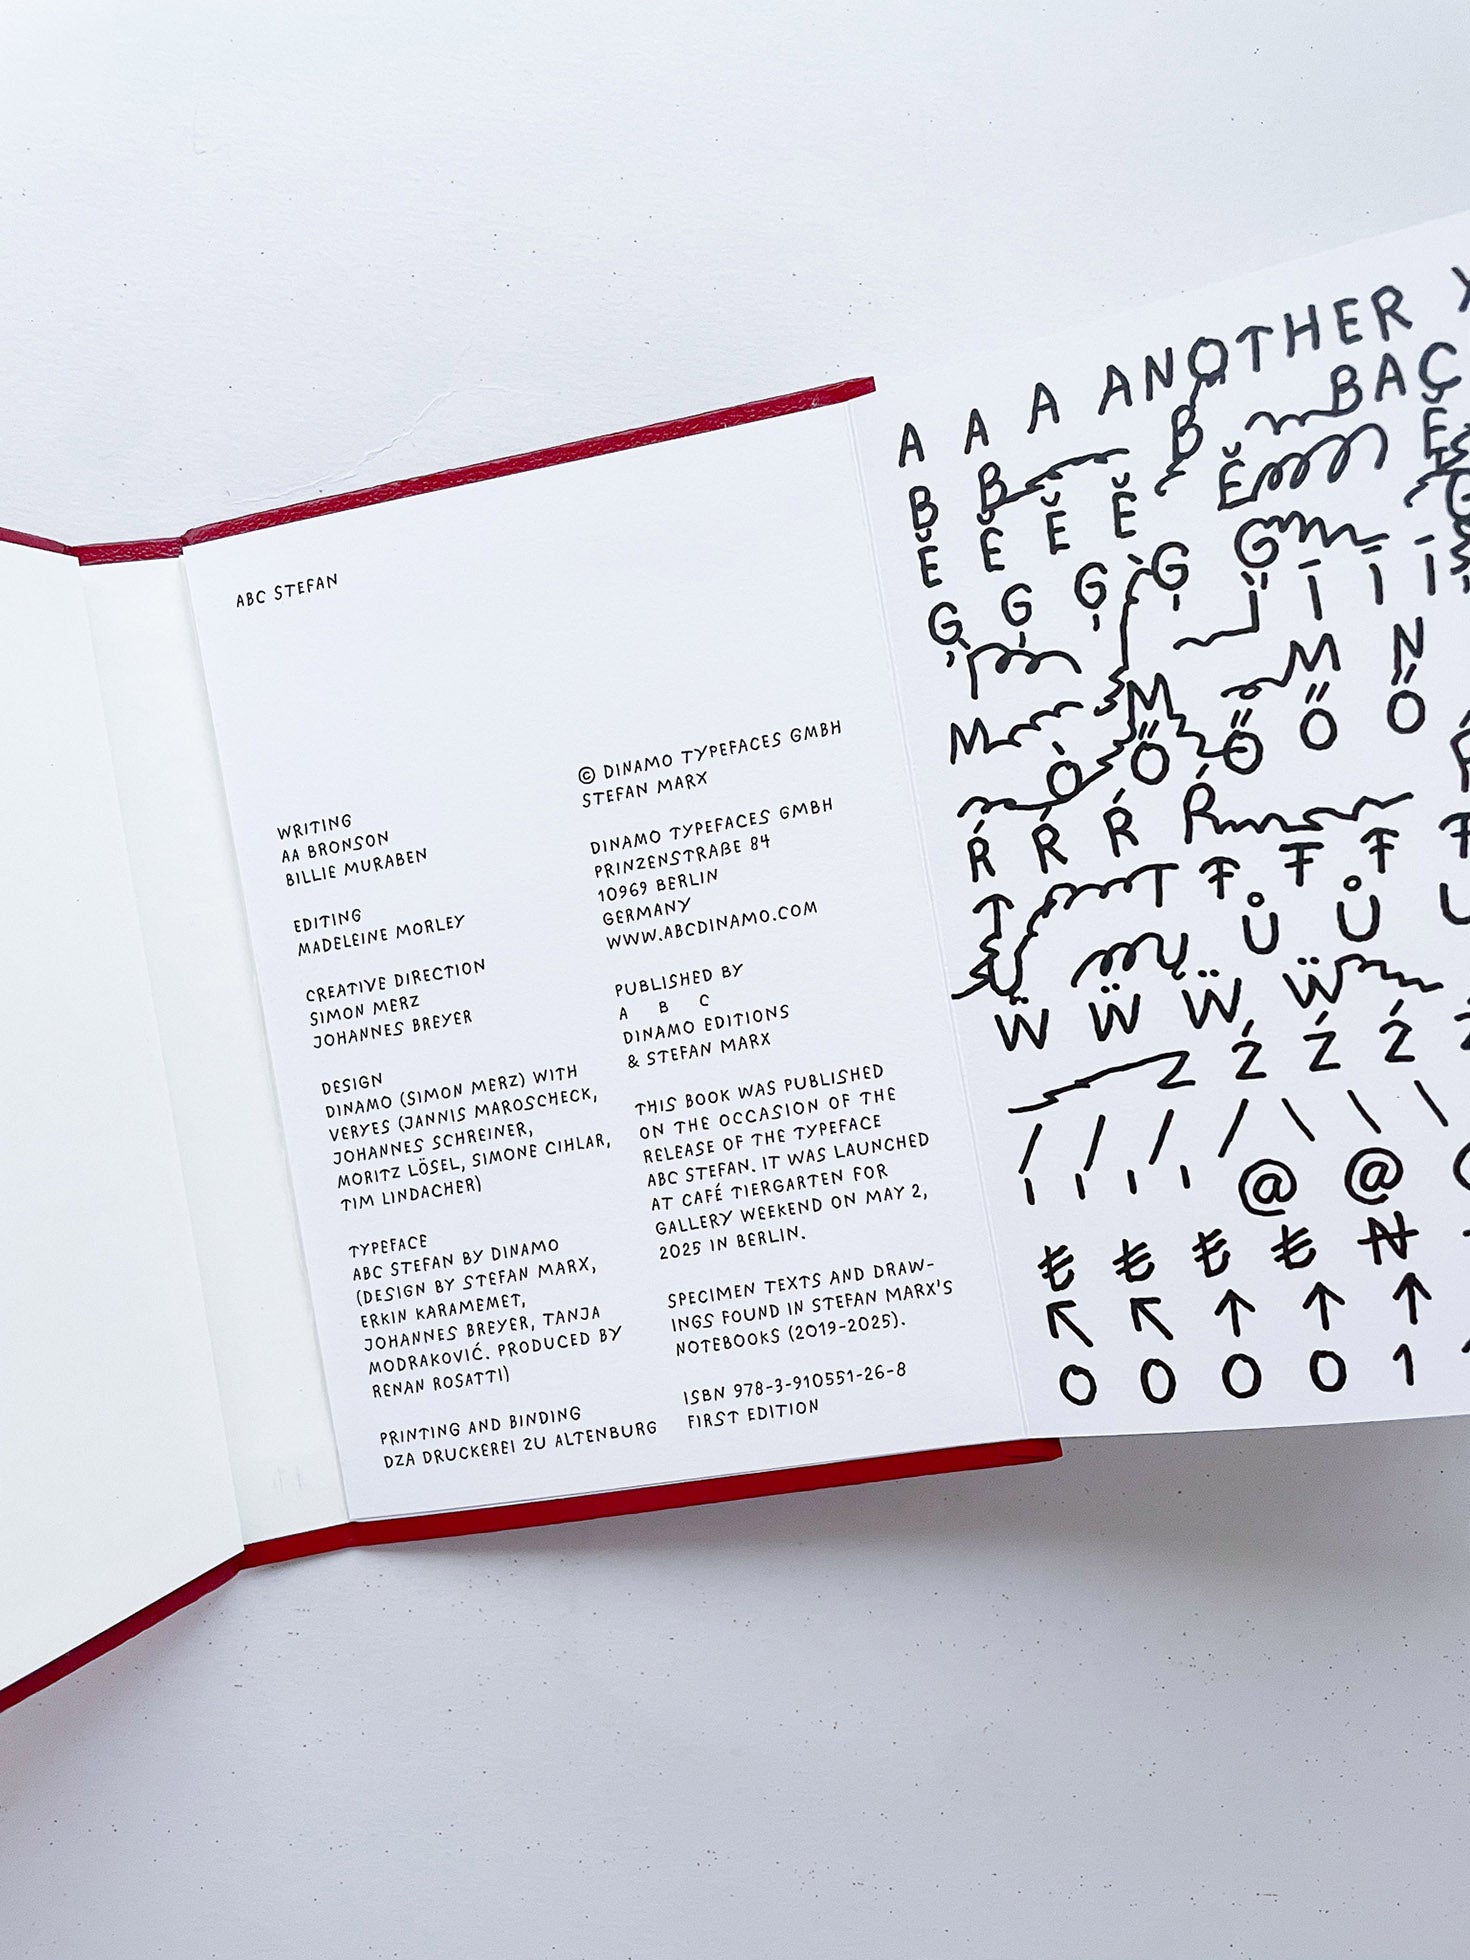 ABC STEFAN
WRITING
AA BRONSON
BILLIE MURABEN
EDITING
MADELEINE MORLEY
CREATIVE DIRECTION
SIMON MERZ
JOHANNES BREYER
DESIGN
DINAMO (SIMON MERZ) WITH
VERYES (JANNIS MAROSCHECK,
JOHANNES SCHREINER,
MORITZ LÖSEL, SIMONE CIHLAR,
TIM LINDACHER)
TYPEFACE
ABC STEFAN BY DINAMO
(DESIGN BY STEFAN MARX,
ERKIN KARAMEMET,
JOHANNES BREYER, TANJA
MODRAKOVIĆ. PRODUCED BY
RENAN ROSATTI)
PRINTING AND BINDING
DZA DRUCKEREI ZU ALTENBURG
© DINAMO TYPEFACES GMBH
STEFAN MARX
DINAMO TYPEFACES GMBH
PRINZENSTRAßE 84
10969 BERLIN
GERMANY
WWW.ABCDINAMO.COM
PUBLISHED BY
A B C
DINAMO EDITIONS
& STEFAN MARX
THIS BOOK WAS PUBLISHED
ON THE OCCASION OF THE
RELEASE OF THE TYPEFACE
ABC STEFAN. IT WAS LAUNCHED
AT CAFÉ TIERGARTEN FOR
GALLERY WEEKEND ON MAY 2,
2025 IN BERLIN.
SPECIMEN TEXTS AND DRAW-
INGS FOUND IN STEFAN MARX'S
NOTEBOOKS (2019-2025).
ISBN 978-3-910551-26-8
FIRST EDITION
A A A ANOTHER
B B B BAÇ
Ĕ Ĕ Ĕ Ĕ Ĕ
Ģ Ģ Ģ Ģ Ģ
Į Ī Ī Ī
M M M N
Ò Ő Ő Ő Ő
Ŕ Ŕ Ŕ Ŕ
T T Ŧ Ŧ Ŧ
U Ų Ů Ů
Ẅ Ẅ Ẅ Ẅ
Z Ź Ź Ź
/ / / / \ \ \
@ @
₺ ₺ ₺ ₺ ₦
↖ ↖ ↑ ↑ ↑
0 0 0 0 1